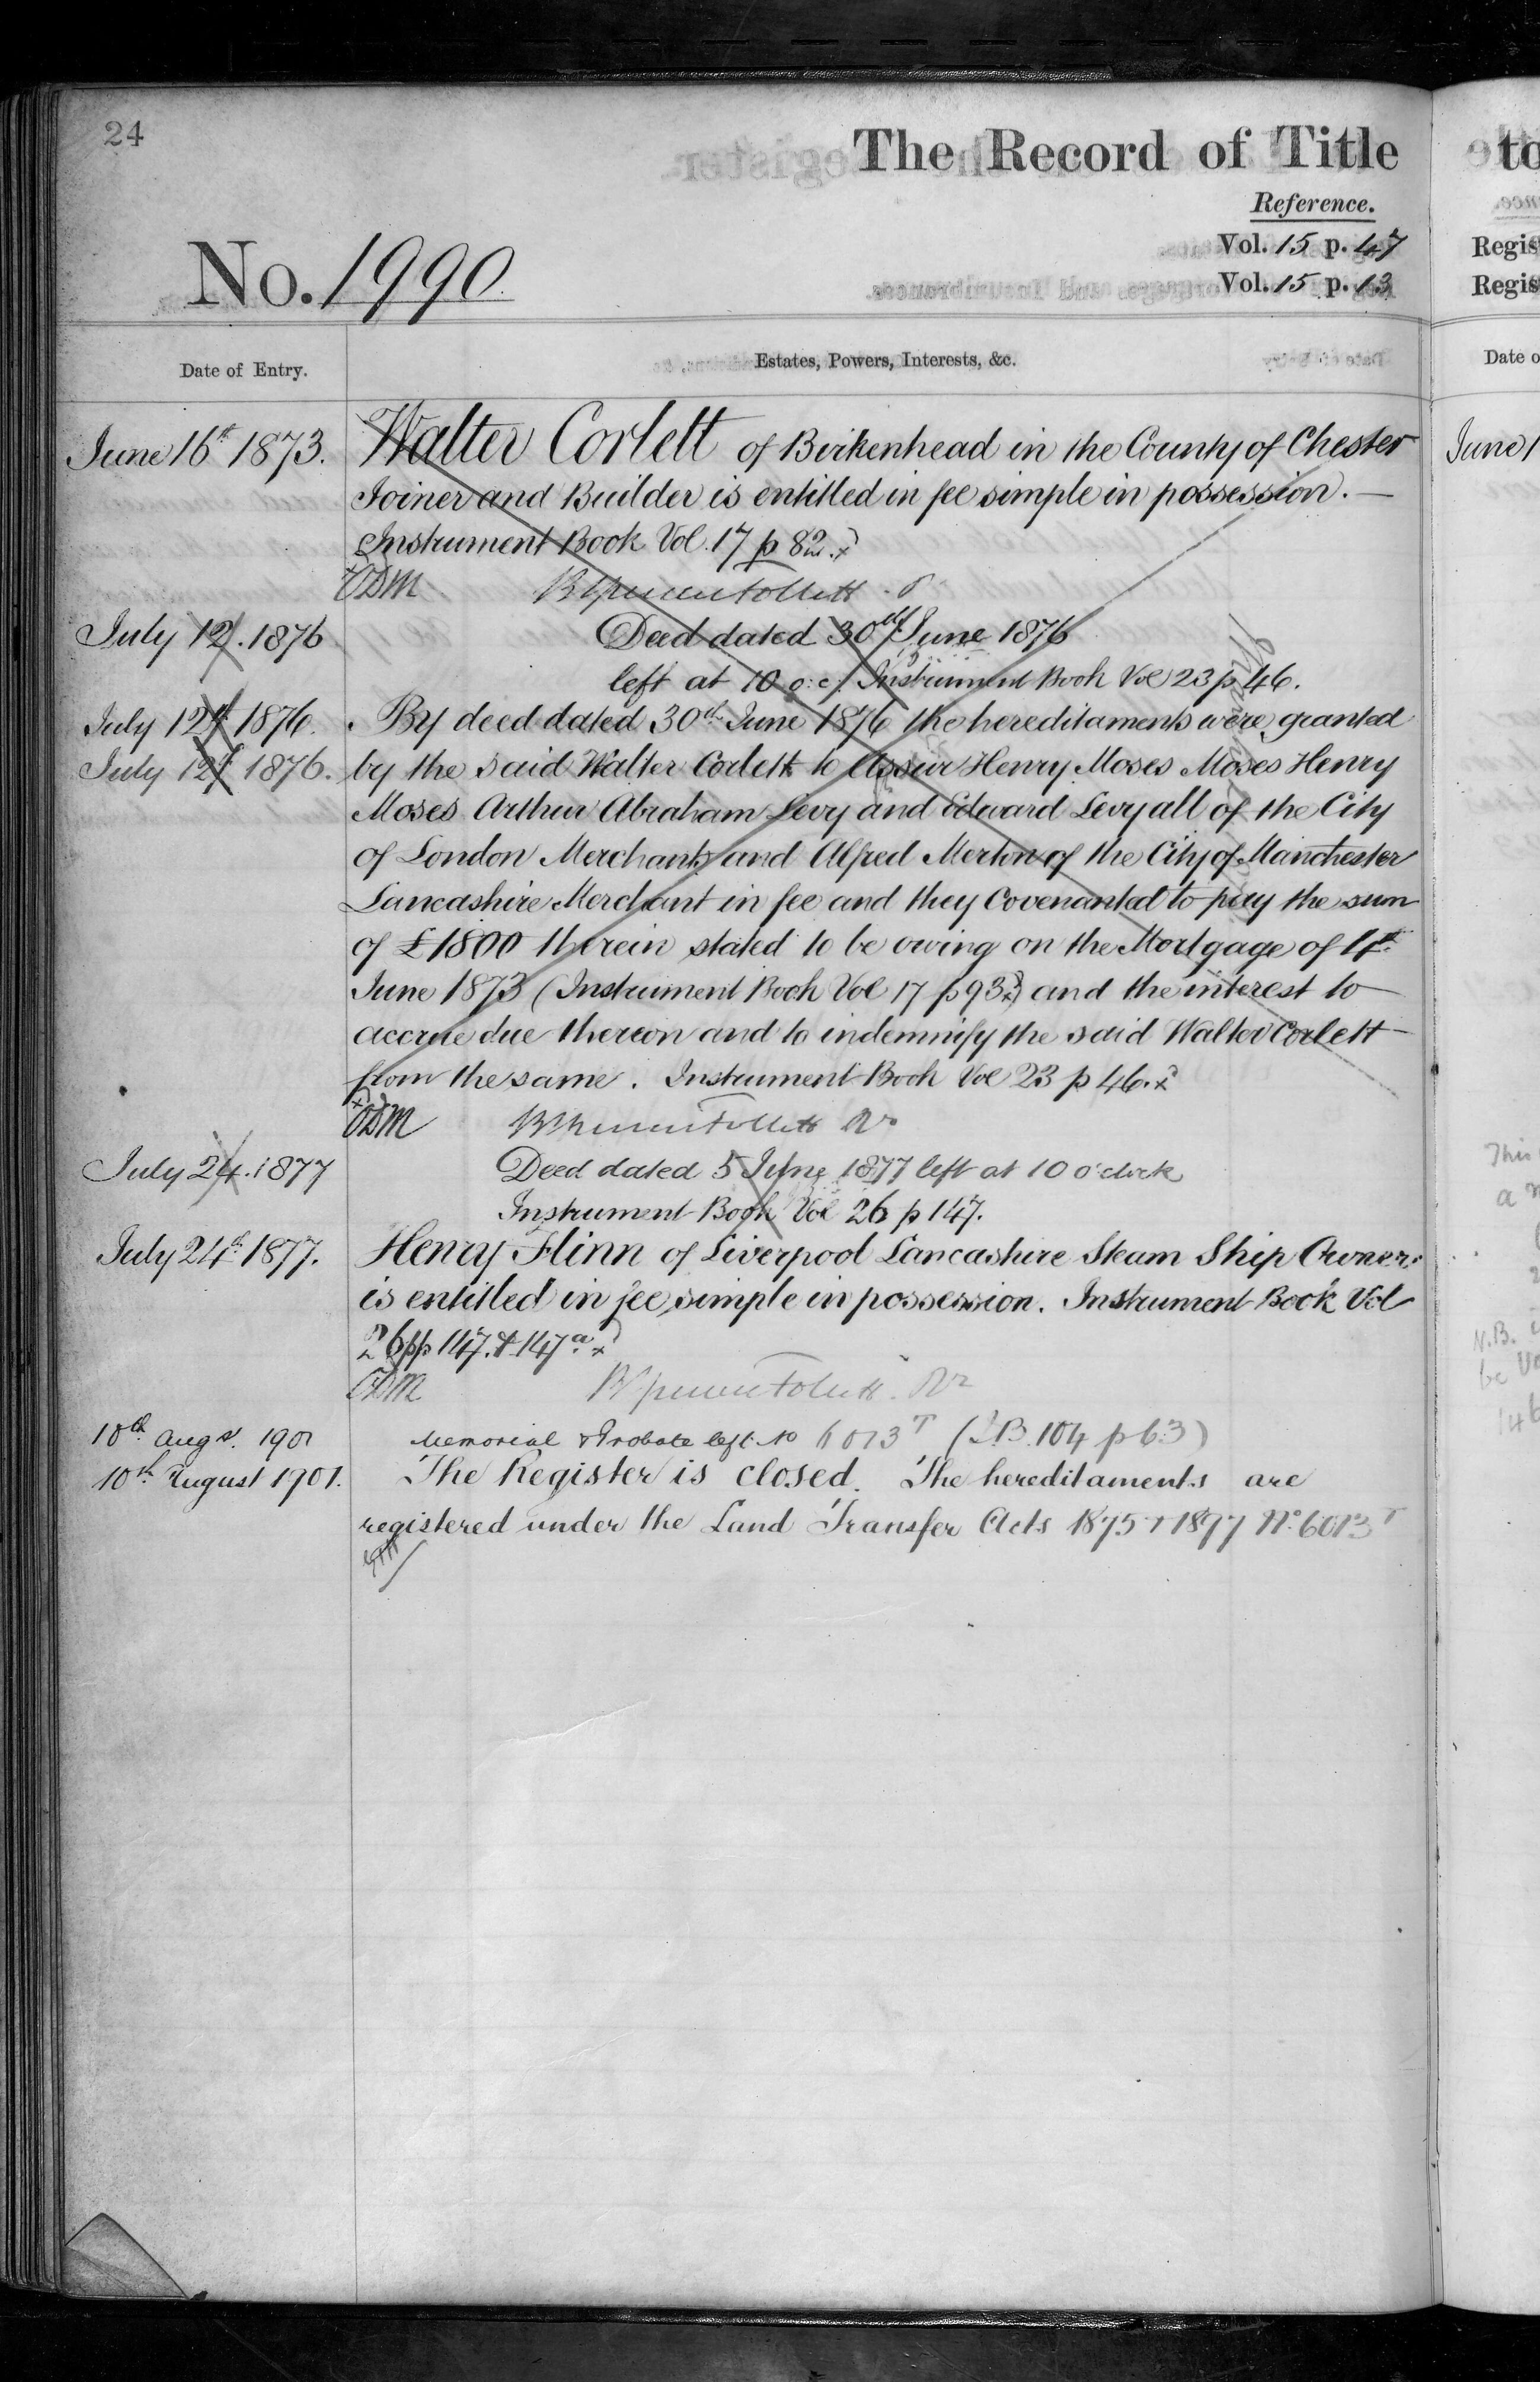 24
The Record of Title
Reference.
No. 1990
Vol. 15 p. 47
Vol. 15 p. 13
Regis
Regis
Date of Entry.
Estates, Powers, Interests, &c.
Date o
June 16th 1873. Walter Corlett of Birkenhead in the County of Chester
June 1
Joiner and Builder is entitled in fee simple in possession. —
Instrument Book Vol. 17 p 82.
ODM
July 12. 1876 Deed dated 30th June 1876
left at 10 o.c. Instrument Book Vol 23 p 46.
July 12th 1876. By deed dated 30th June 1876 the hereditaments were granted
July 12th 1876. by the said Walter Corlett to Assur Henry Moses Moses Henry
Moses Arthur Abraham Levy and Edward Levy all of the City
of London Merchants and Alfred Merton of the City of Manchester
Lancashire Merchant in fee and they Covenanted to pay the sum
of £1800 therein stated to be owing on the Mortgage of 4th
June 1873 (Instrument Book Vol 17 p 93) and the interest to
accrue due thereon and to indemnify the said Walter Corlett
from the same. Instrument Book Vol 23 p 46.
ODM
July 24. 1877 Deed dated 5 June 1877 left at 10 o'clock
Instrument Book Vol 26 p 147.
July 24th 1877. Henry Flinn of Liverpool Lancashire Steam Ship Owner
is entitled in fee simple in possession. Instrument Book Vol
26 pp 147. & 147a.
ODM
10th Augst. 1901 Memorial & Probate left No 6013T (I.B. 104 p 63)
10th August 1901. The Register is closed. The hereditaments are
registered under the Land Transfer Acts 1875 & 1897 No. 6013T
This
a
N.B.
be